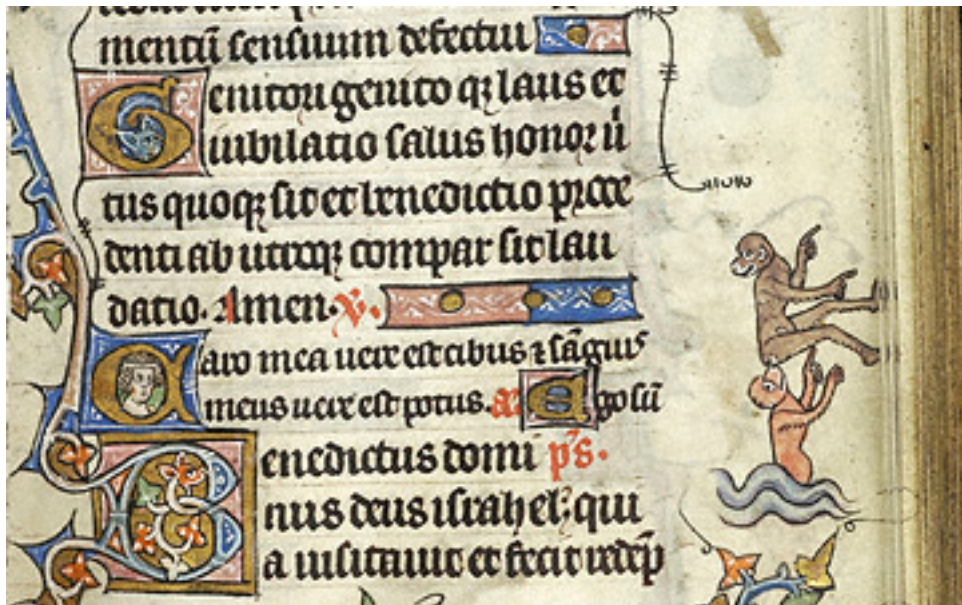 mentū sensuum defectui
Genitori genito qꝫ laus et
iubilatio salus honor ū
tus quoqꝫ sit et benedictio proce
denti ab utroqꝫ compar sit lau
datio. Amen. v.
Caro mea uere est cibus ⁊ sāguis
meus uere est potus. añ Ego sū
Benedictus domi ps.
nus deus israhel: qui
a uisitauit et fecit redēp